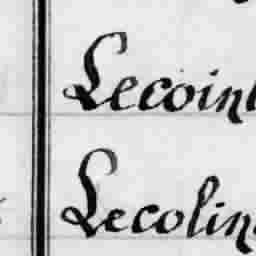 Lecoint
Lecolin